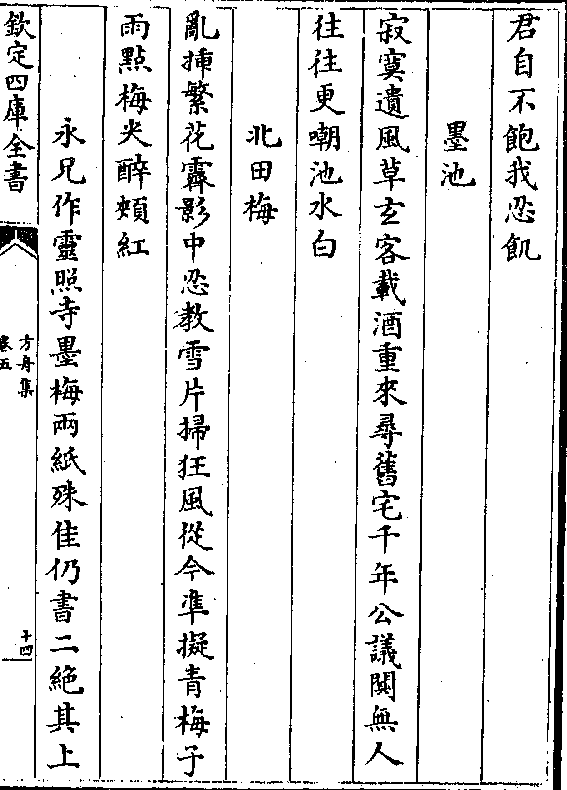 君自不飽我忍飢
墨池
寂寞遺風草玄客載酒重來尋舊宅千年公議闃無人
往往更嘲池水白
北田梅
亂揷繁花霽影中忍教雪片掃狂風從今凖擬青梅子
雨點梅尖醉頰紅
永兄作靈照寺墨梅兩紙殊佳仍書二絶其上
欽定四庫全書
方舟集
卷五
十四